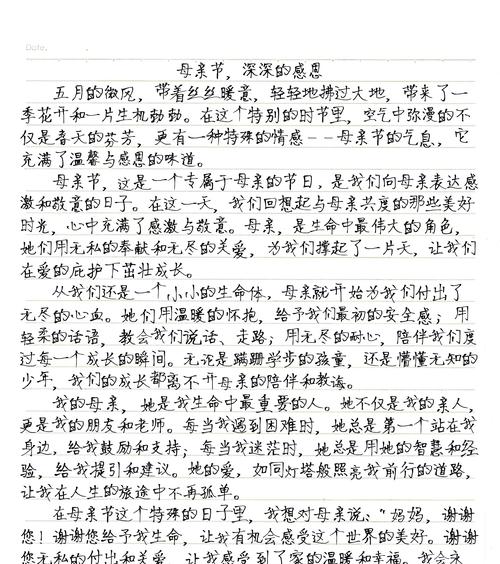 Date.
母亲节，深深的感恩
五月的微风，带着丝丝暖意，轻轻地拂过大地，带来了一
季花开和一片生机勃勃。在这个特别的时节里，空气中弥漫的不
仅是春天的芬芳，更有一种特殊的情感--母亲节的气息，它
充满了温馨与感恩的味道。
母亲节，这是一个专属于母亲的节日，是我们向母亲表达感
激和敬意的日子。在这一天，我们回想起与母亲共度的那些美好
时光，心中充满了感激与敬意。母亲，是生命中最伟大的角色，
她们用无私的奉献和无尽的关爱，为我们撑起了一片天，让我们
在爱的庇护下茁壮成长。
从我们还是一个小小的生命体，母亲就开始为我们付出了
无尽的心血。她们用温暖的怀抱，给予我们最初的安全感；用
轻柔的话语，教会我们说话、走路；用无尽的耐心，陪伴我们度
过每一个成长的瞬间。无论是蹒跚学步的孩童，还是懵懂无知的
少年，我们的成长都离不开母亲的陪伴和教诲。
我的母亲，她是我生命中最重要的人。她不仅是我的亲人，
更是我的朋友和老师。每当我遇到困难时，她总是第一个站在我
身边，给我鼓励和支持；每当我迷茫时，她总是用她的智慧和经
验，给我提引和建议。她的爱，如同灯塔般照亮我前行的道路，
让我在人生的旅途中不再孤单。
在母亲节这个特殊的日子里，我想对母亲说：“妈妈，谢谢
您！谢谢您给予我生命，让我有机会感受这个世界的美好。谢谢
您无私的付出和关爱，让我感受到了家的温暖和幸福。我会永